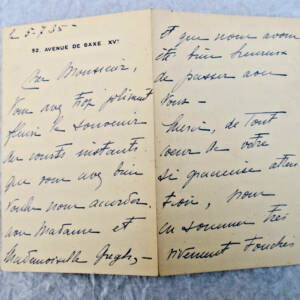 2 5-7.35-
52. AVENUE DE SAXE XVᵉ
Cher Monsieur,
Vous avez trop joliment
fleuri le souvenir
des courts instants
que vous avez bien
voulu nous accorder
avec Madame et
Mademoiselle
et que nous avons
été bien heureux
de passer avec
vous -
Merci, de tout
cœur de votre
si gracieuse atten
tion, nous
en sommes très
vivement touchés